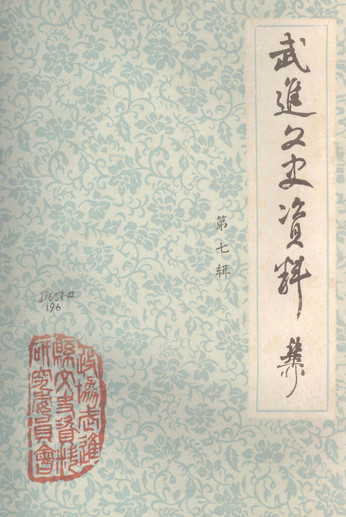 武進文史资料
第七辑
D658-4
196
政協武進
縣文史資料
研究委員會